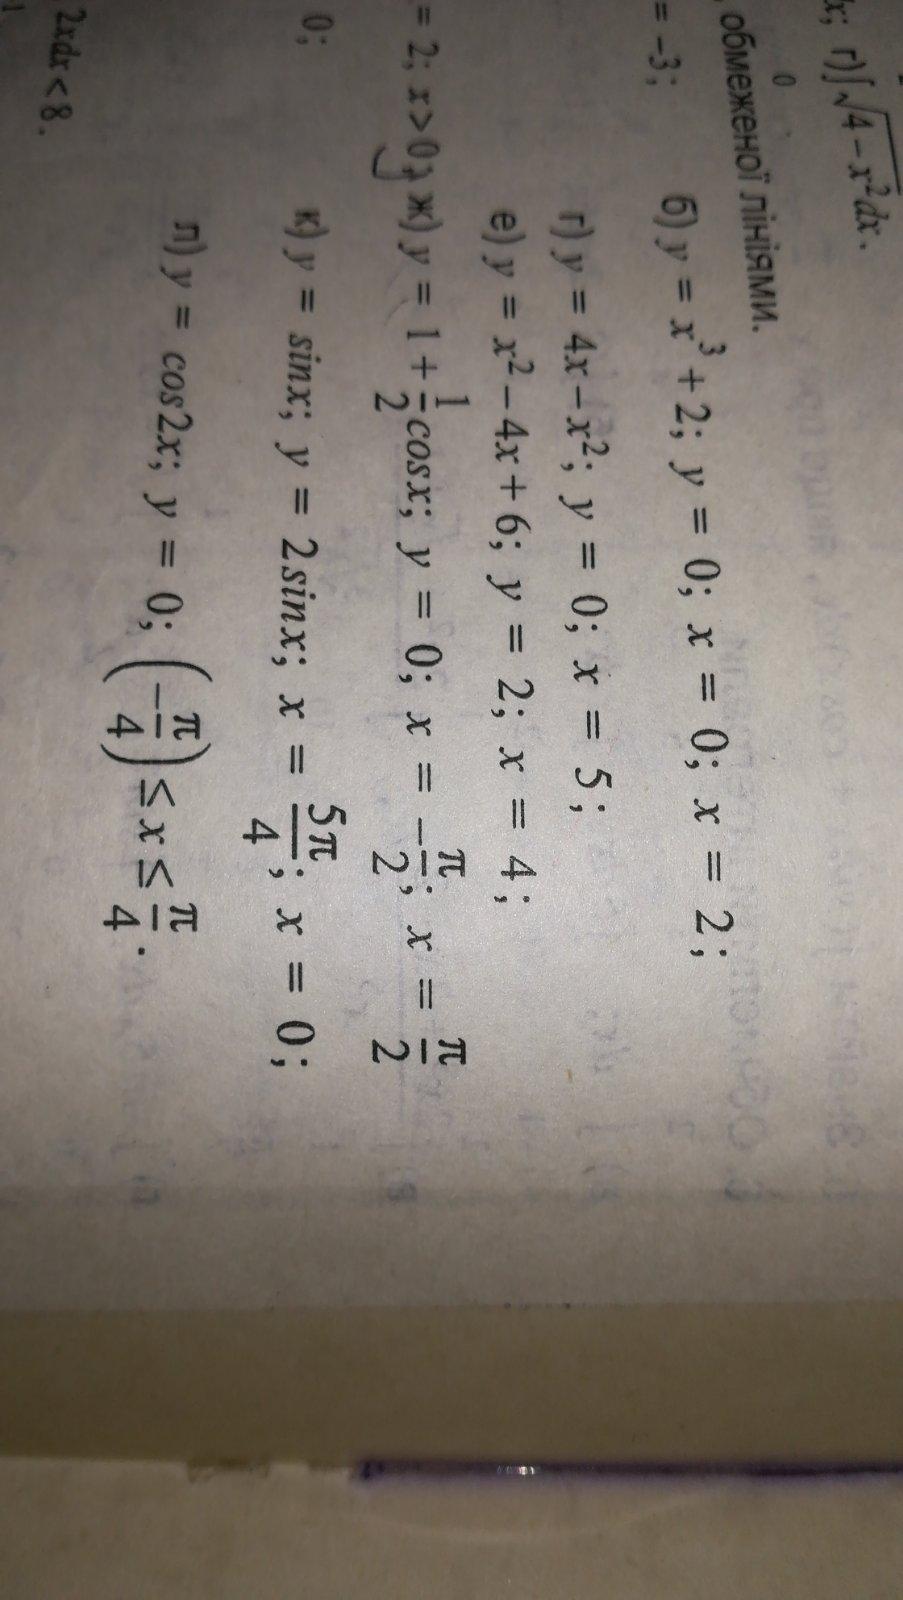 x; г) ∫√4 − x²dx.
0
обмеженої лініями.
= −3; б) y = x³ + 2; y = 0; x = 0; x = 2;
г) y = 4x − x²; y = 0; x = 5;
е) y = x² − 4x + 6; y = 2; x = 4;
= 2; x > 0; ж) y = 1 + 1/2 cosx; y = 0; x = −π/2; x = π/2
0; к) y = sinx; y = 2sinx; x = 5π/4; x = 0;
л) y = cos2x; y = 0; (−π/4) ≤ x ≤ π/4.
2xdx < 8.
−1